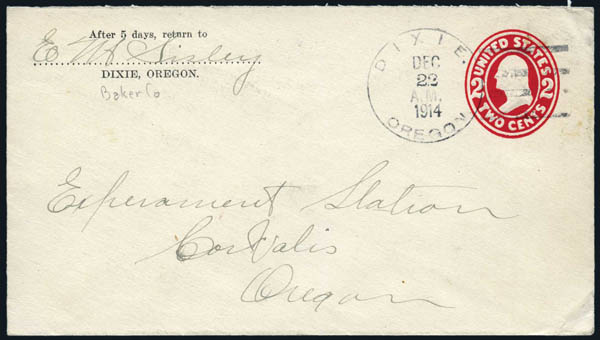 After 5 days, return to
E M Sisley
DIXIE, OREGON.
Baker Co
DIXIE.
DEC
22
A.M.
1914
OREGON
UNITED STATES
2 2
TWO CENTS
Experament Station
CorValis
Oregon